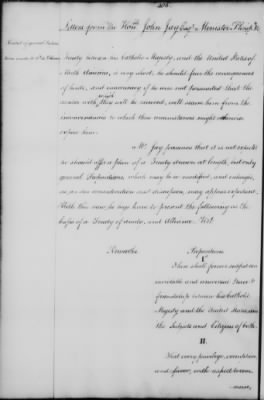 406.
Letters from the Honble John Jay Esqr Minister Plenip. &c
Treaty between his Catholic Majesty, and the United States of
North America, is very short, he should fear the consequences
of haste, and inaccuracy, if he was not persuaded that the
candor with which they will be received, will secure him from the
embarrassments to which these circumstances might otherwise
expose him.
Mr. Jay presumes that it is not expected
he should offer a plan of a Treaty drawn at length, but only
general Propositions, which may be so modified, and enlarged
as, on due consideration and discussion, may appear expedient
With this view, he begs leave to present the following as the
basis of a Treaty of Amity, and Alliance. Vizt
Remarks
Propositions
I
There shall forever subsist an
inviolable and universal Peace &
friendship between his Catholic
Majesty and the United States and
the Subjects and Citizens of both.
II.
That every privilege, exemption
and favor, with respect to com-
merce,